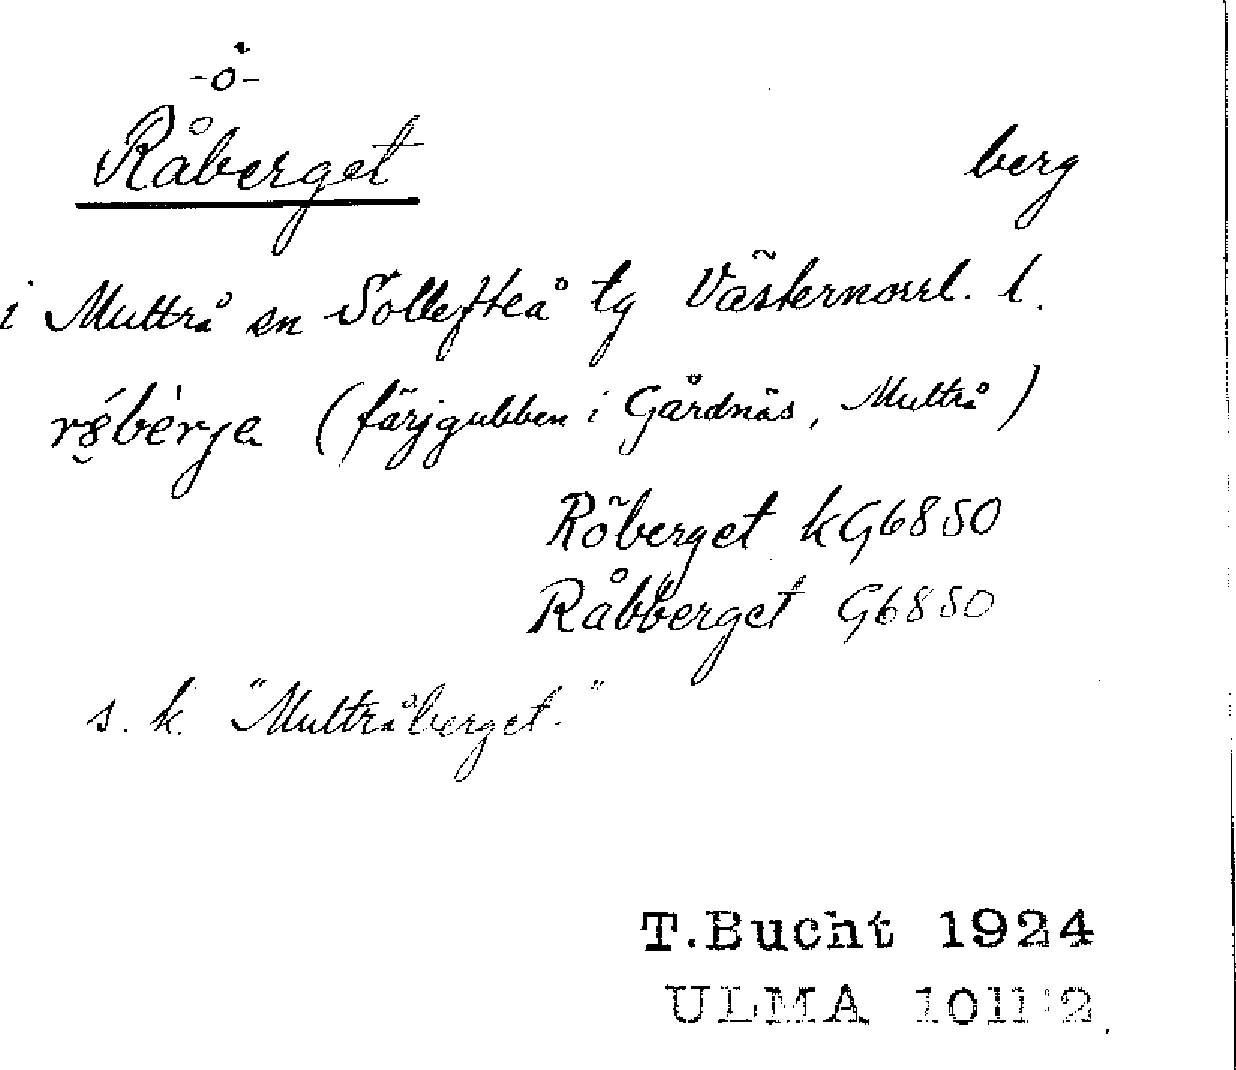 -ö-
Råberget berg
i Multrå sn Sollefteå tg Västernorrl. l.
(färjgubben i Gårdnäs, Multrå)
Röberget kG6850
Råbberget G6850
s. k. "Multråberget."
T.Bucht 1924
ULMA 1011:2